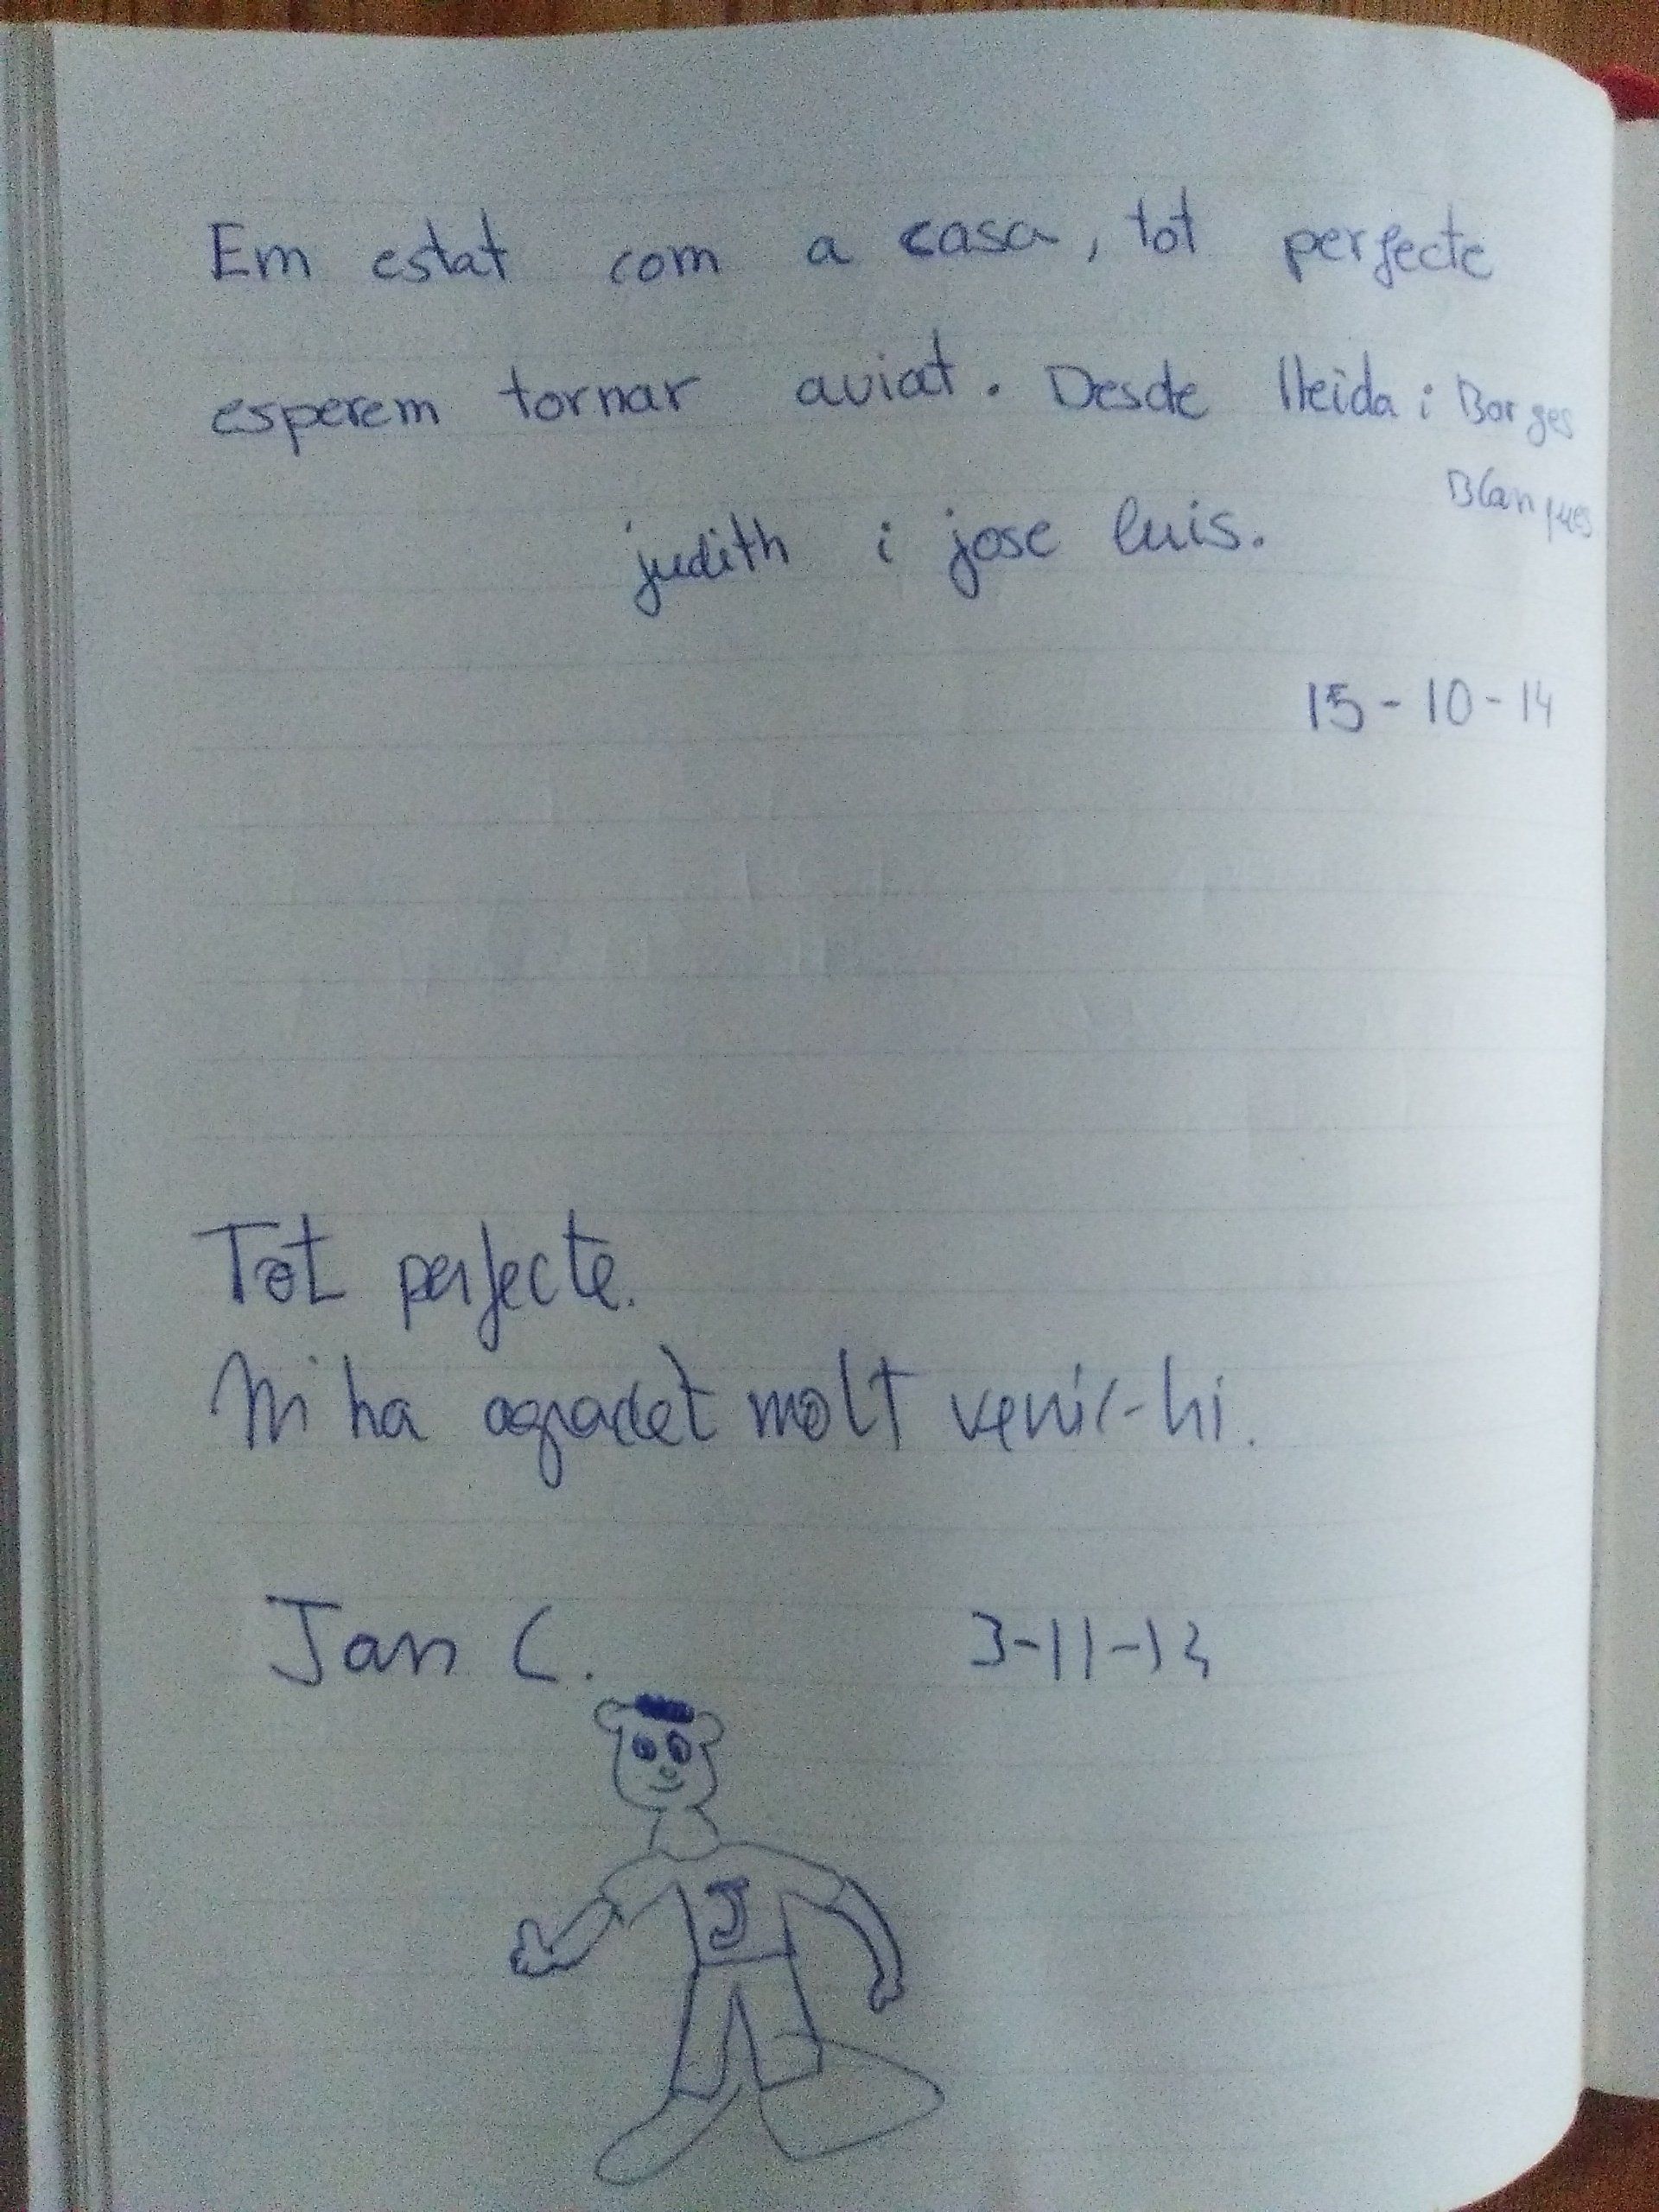 Em estat com a casa, tot perfecte
esperem tornar aviat. Desde lleida i Borges
Blanques
judith i jose luis.
15-10-14
Tot perfecte.
M'ha agradat molt venir-hi.
Jan C. 3-11-13
J